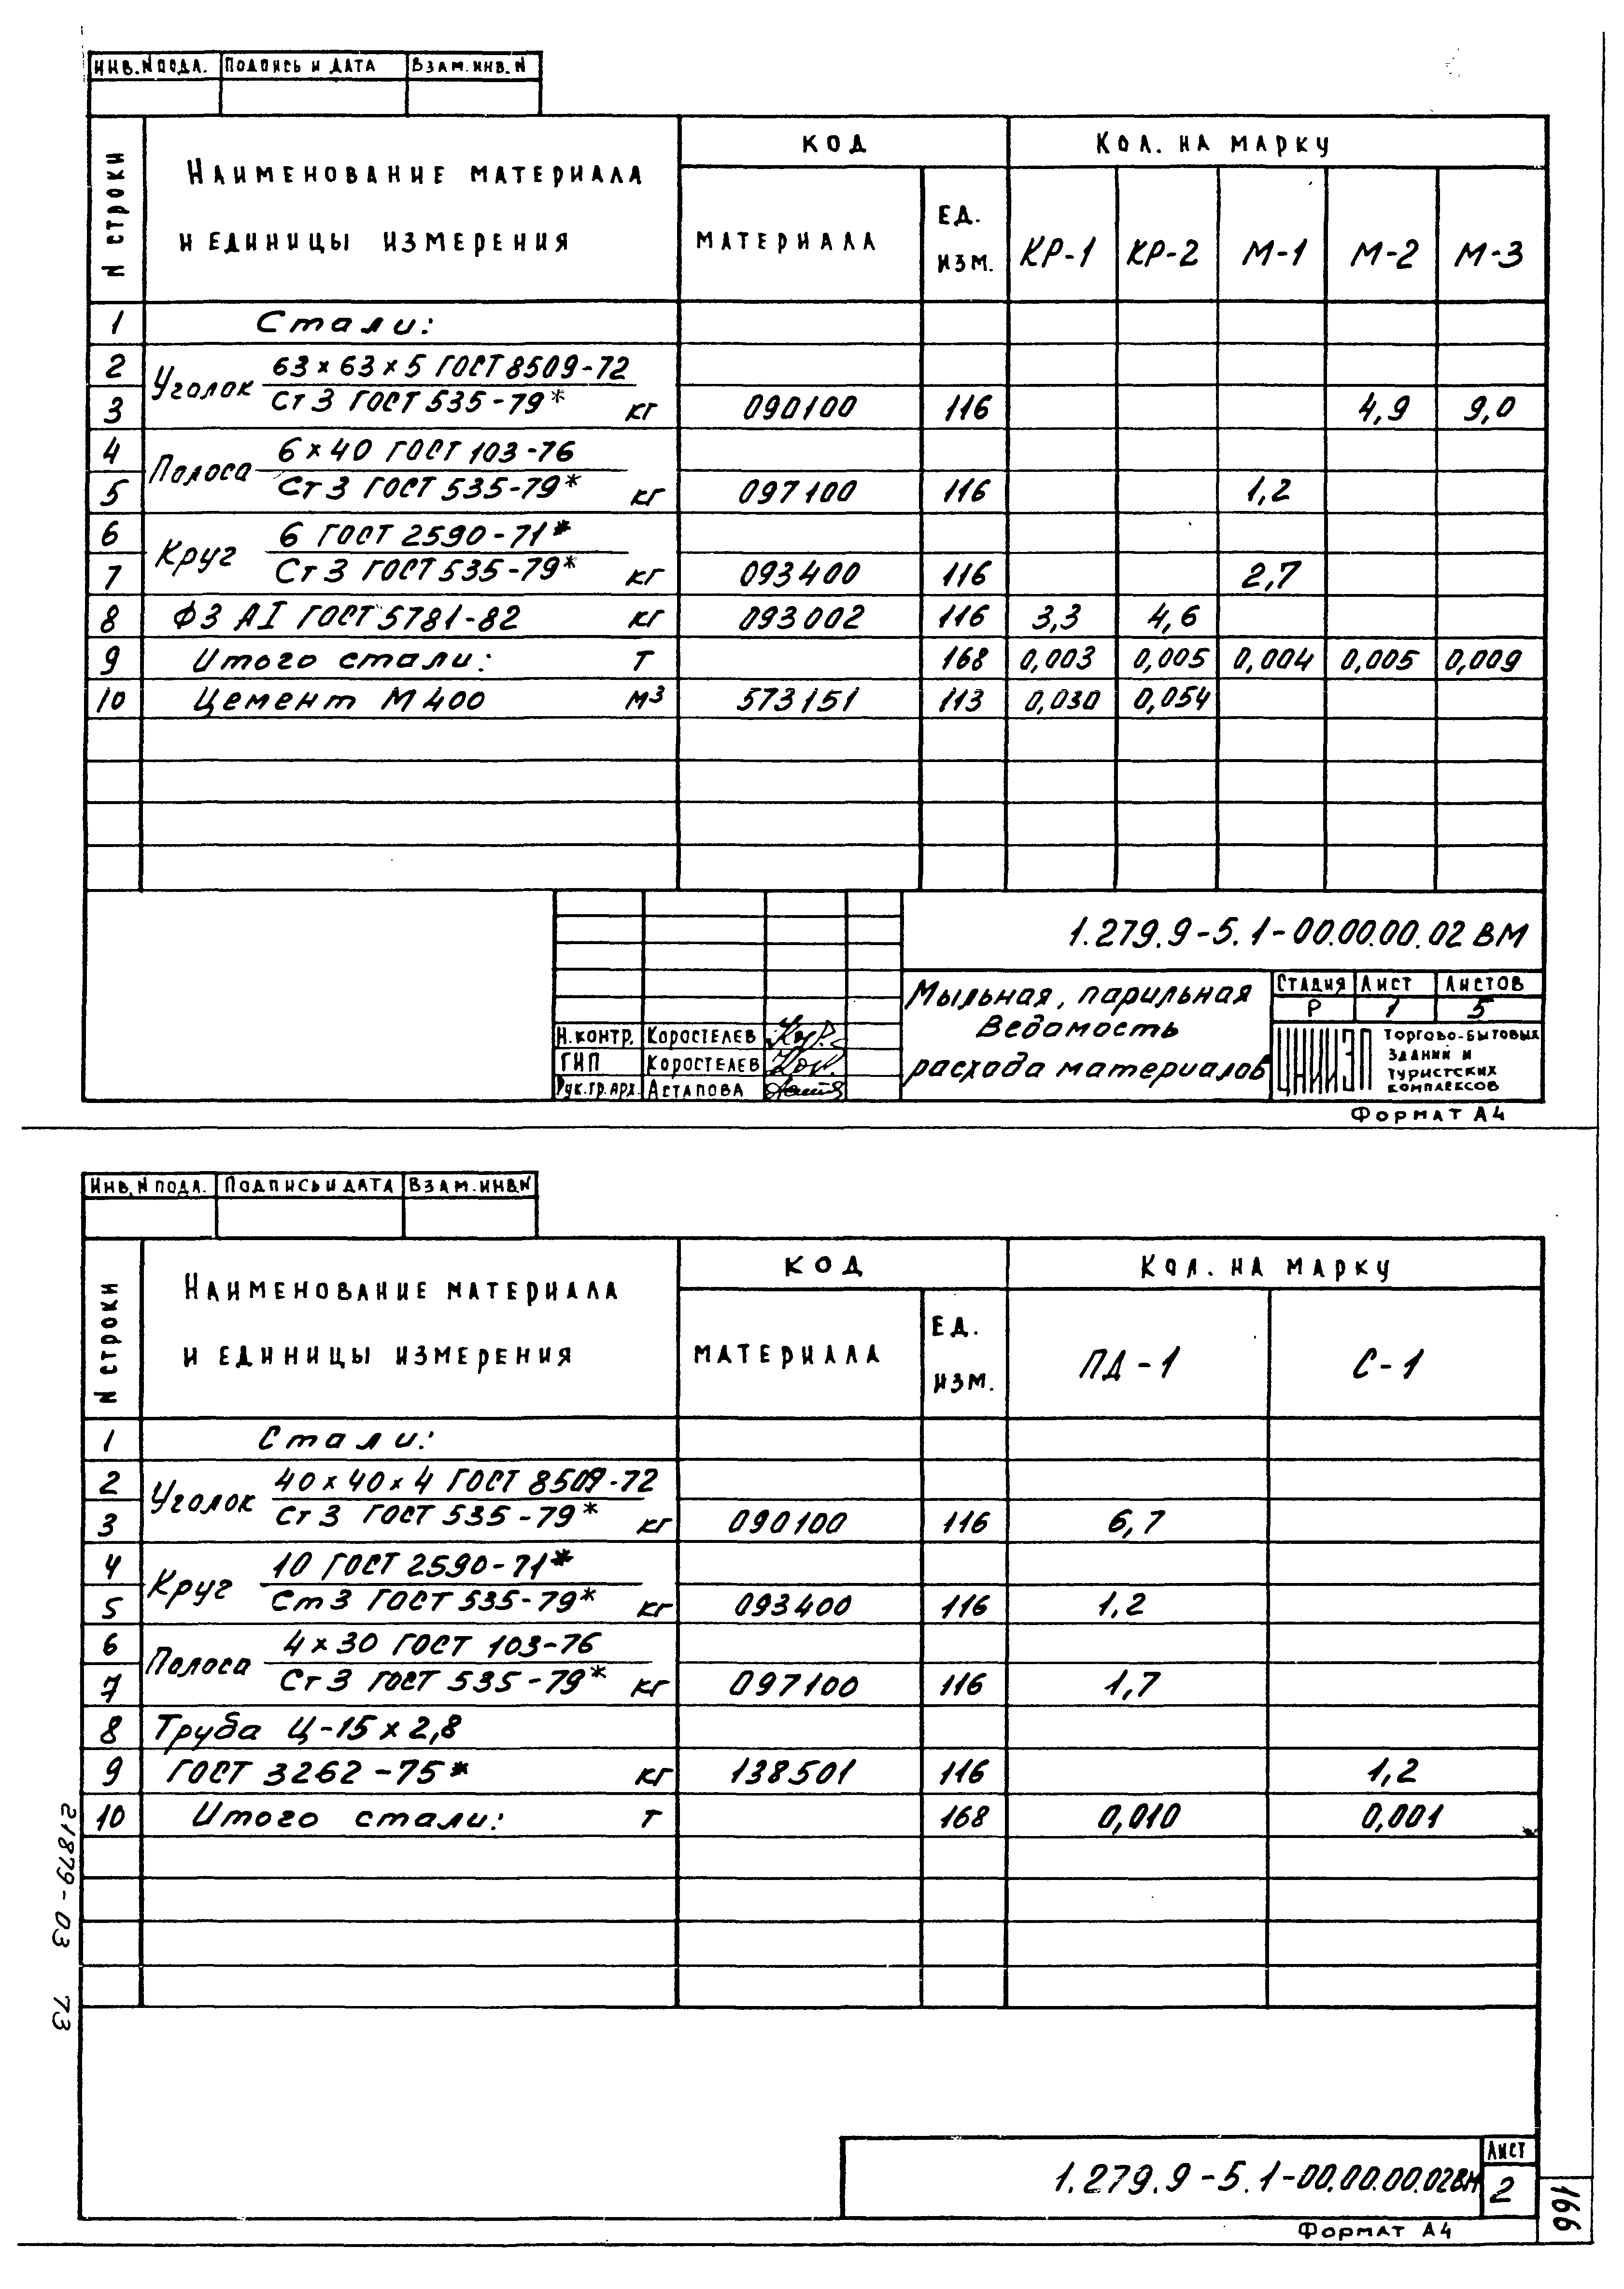 Инв. N подл. Подпись и дата Взам. инв. N
N строки
Наименование материала
и единицы измерения
Код
материала
Ед.
изм.
Кол. на марку
КР-1 КР-2 М-1 М-2 М-3
1 Стали:
2 Уголок 63×63×5 ГОСТ 8509-72
3 Ст 3 ГОСТ 535-79* кг 090100 116 4,9 9,0
4 Полоса 6×40 ГОСТ 103-76
5 Ст 3 ГОСТ 535-79* кг 097100 116 1,2
6 Круг 6 ГОСТ 2590-71*
7 Ст 3 ГОСТ 535-79* кг 093400 116 2,7
8 Ф3 АI ГОСТ 5781-82 кг 093002 116 3,3 4,6
9 Итого стали: т 168 0,003 0,005 0,004 0,005 0,009
10 Цемент М400 м³ 573151 113 0,030 0,054
1.279.9-5.1-00.00.00.02 ВМ
Мыльная, парильная
Ведомость
расхода материалов
Стадия Лист Листов
Р 1 5
Н.контр. Коростелев
ГИП Коростелев
Рук.гр.арх. Астапова
ЦНИИЭП
торгово-бытовых
зданий и
туристских
комплексов
Формат А4
Инв. N подл. Подпись и дата Взам. инв. N
N строки
Наименование материала
и единицы измерения
Код
материала
Ед.
изм.
Кол. на марку
ПД-1 С-1
1 Стали:
2 Уголок 40×40×4 ГОСТ 8509-72
3 Ст 3 ГОСТ 535-79* кг 090100 116 6,7
4 Круг 10 ГОСТ 2590-71*
5 Ст 3 ГОСТ 535-79* кг 093400 116 1,2
6 Полоса 4×30 ГОСТ 103-76
7 Ст 3 ГОСТ 535-79* кг 097100 116 1,7
8 Труба Ц-15×2,8
9 ГОСТ 3262-75* кг 138501 116 1,2
10 Итого стали: т 168 0,010 0,001
21879-03 73
1.279.9-5.1-00.00.00.02ВМ
Лист
2
166
Формат А4